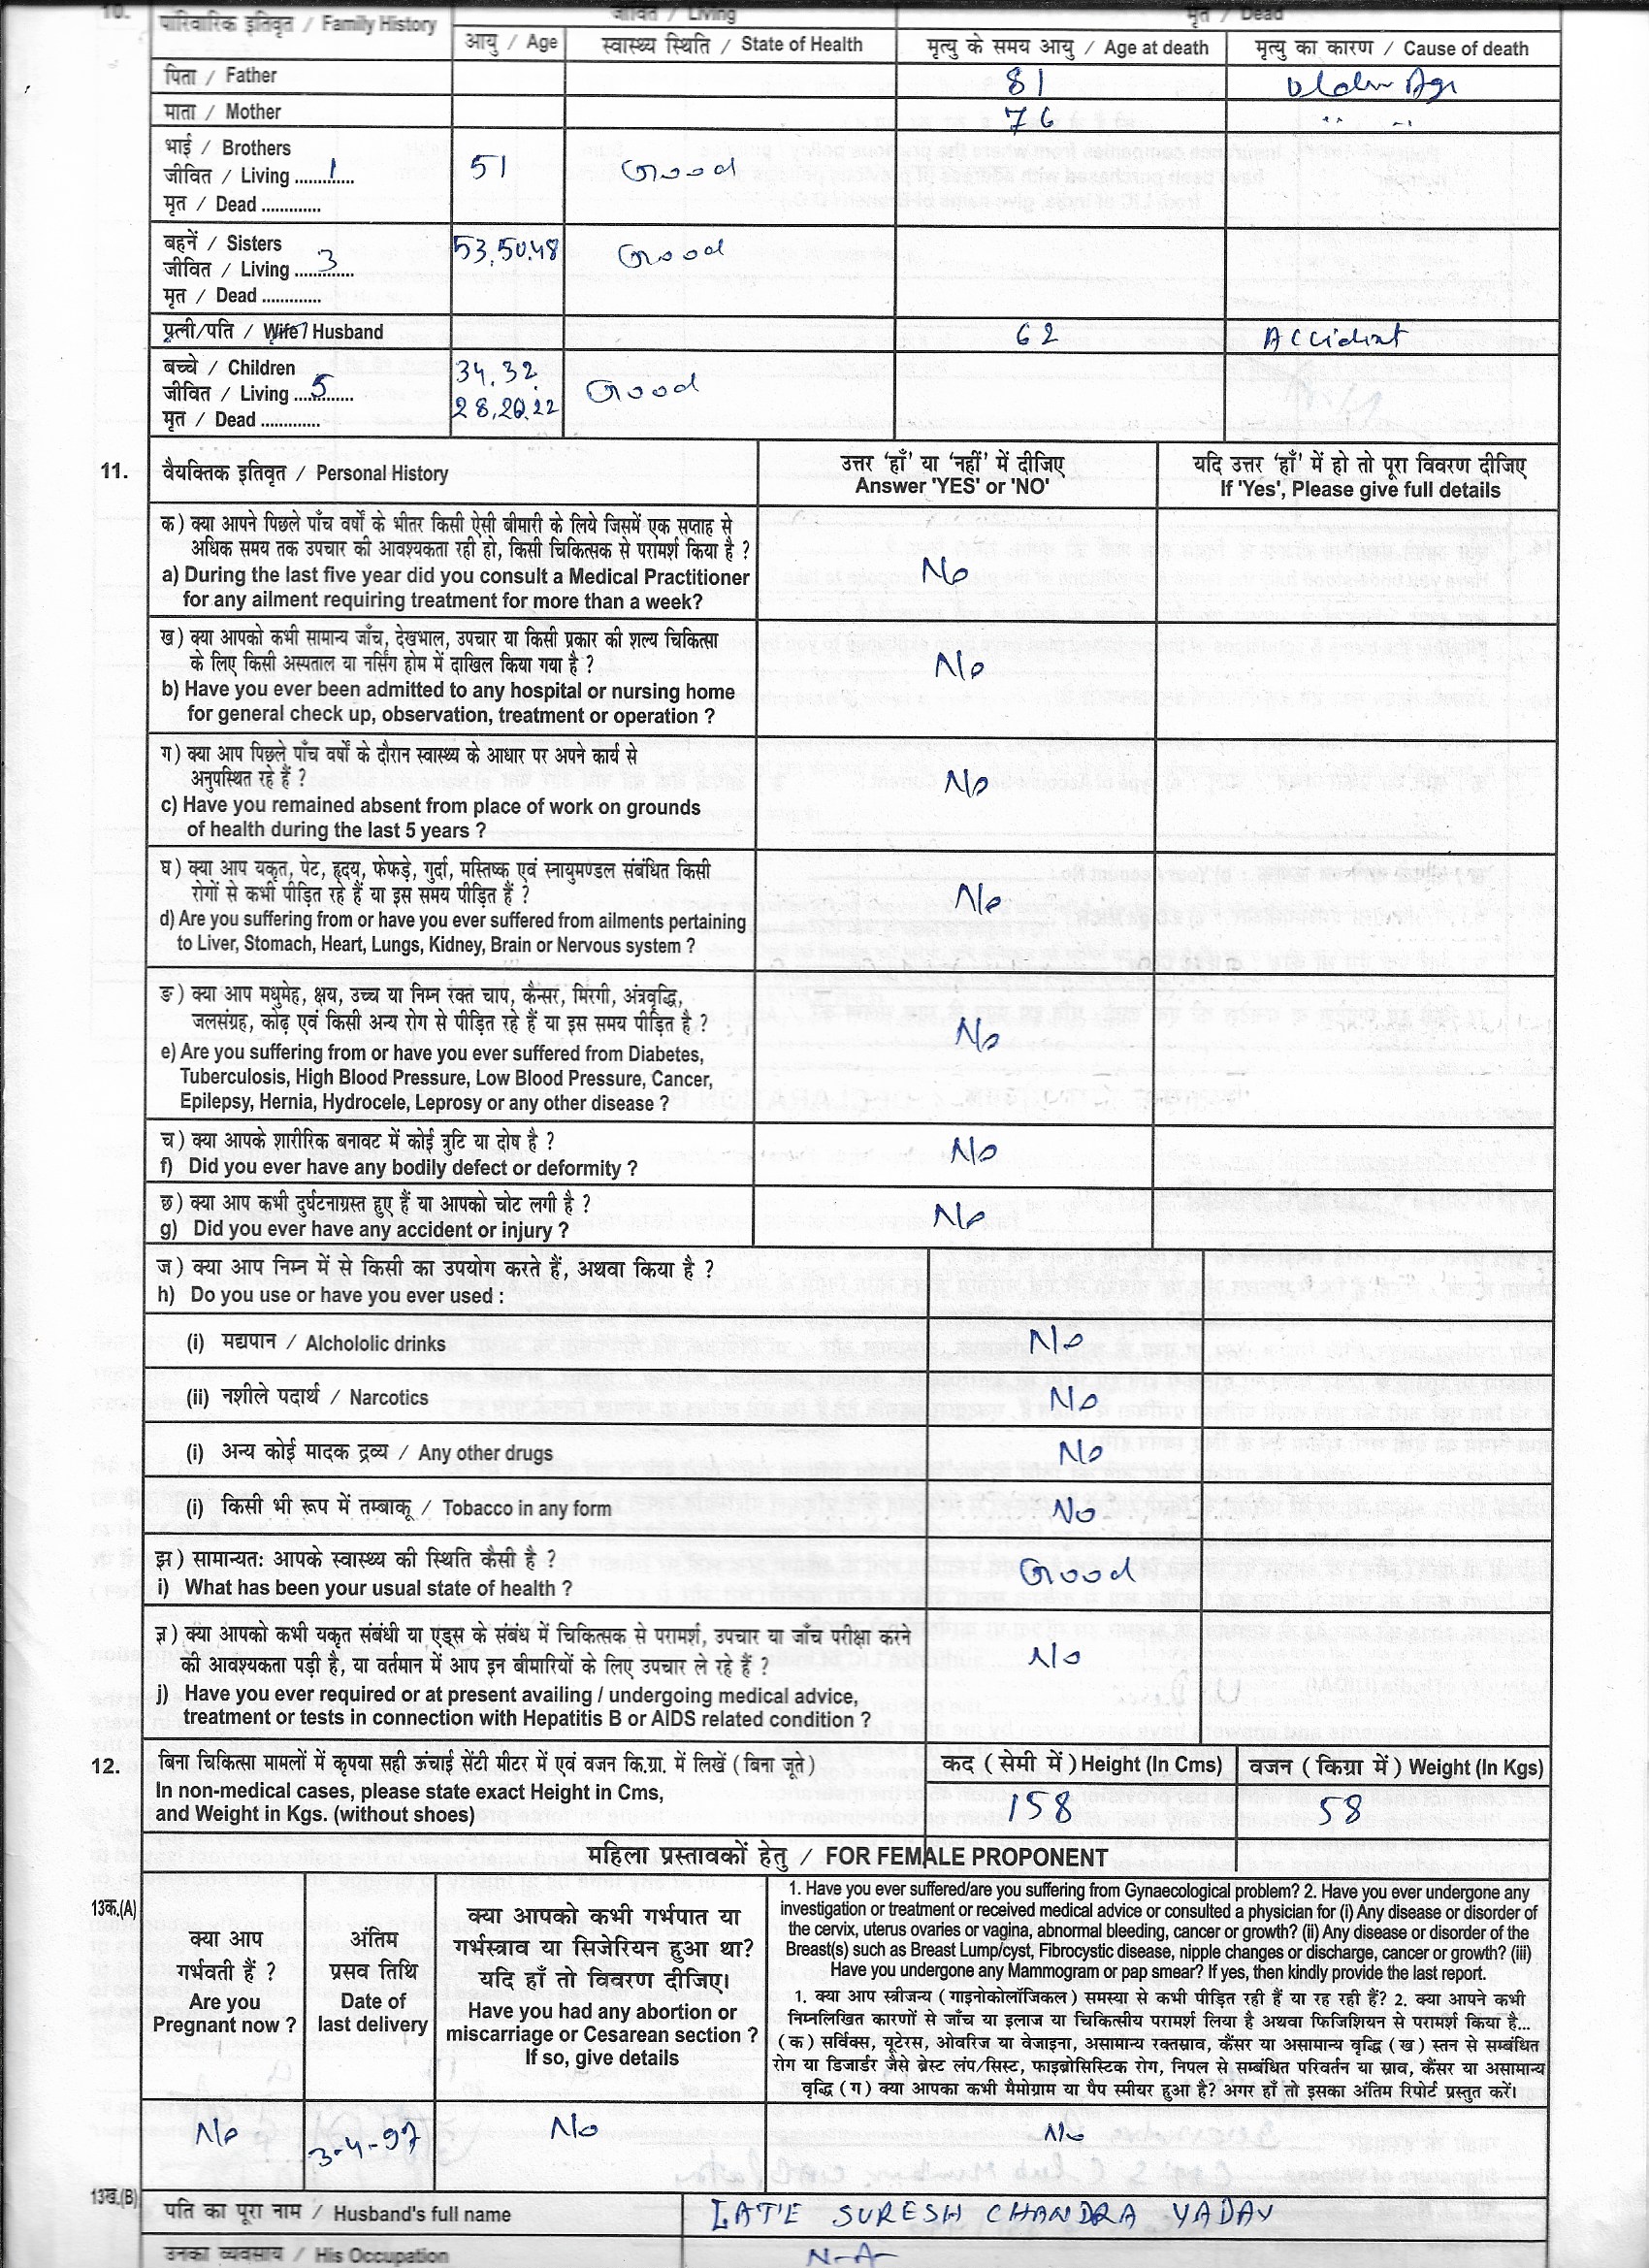 10.
पारिवारिक इतिवृत / Family History
जीवित / Living
मृत / Dead
आयु / Age
स्वास्थ्य स्थिति / State of Health
मृत्यु के समय आयु / Age at death
मृत्यु का कारण / Cause of death
पिता / Father
81
Age
माता / Mother
76
भाई / Brothers
जीवित / Living ....1.....
51
Good
मृत / Dead .............
बहनें / Sisters
जीवित / Living ....3.....
53,50,48
Good
मृत / Dead .............
पत्नी/पति / Wife/ Husband
62
Accident
बच्चे / Children
जीवित / Living ...5......
34,32
28,26,22
Good
मृत / Dead .............
11. वैयक्तिक इतिवृत / Personal History
उत्तर ‘हाँ’ या ‘नहीं’ में दीजिए
Answer 'YES' or 'NO'
यदि उत्तर ‘हाँ’ में हो तो पूरा विवरण दीजिए
If 'Yes', Please give full details
क) क्या आपने पिछले पाँच वर्षों के भीतर किसी ऐसी बीमारी के लिये जिसमें एक सप्ताह से
अधिक समय तक उपचार की आवश्यकता रही हो, किसी चिकित्सक से परामर्श किया है ?
a) During the last five year did you consult a Medical Practitioner
for any ailment requiring treatment for more than a week?
No
ख) क्या आपको कभी सामान्य जाँच, देखभाल, उपचार या किसी प्रकार की शल्य चिकित्सा
के लिए किसी अस्पताल या नर्सिंग होम में दाखिल किया गया है ?
b) Have you ever been admitted to any hospital or nursing home
for general check up, observation, treatment or operation ?
No
ग) क्या आप पिछले पाँच वर्षों के दौरान स्वास्थ्य के आधार पर अपने कार्य से
अनुपस्थित रहे हैं ?
c) Have you remained absent from place of work on grounds
of health during the last 5 years ?
No
घ) क्या आप यकृत, पेट, हृदय, फेफड़े, गुर्दा, मस्तिष्क एवं स्नायुमण्डल संबंधित किसी
रोगों से कभी पीड़ित रहे हैं या इस समय पीड़ित हैं ?
d) Are you suffering from or have you ever suffered from ailments pertaining
to Liver, Stomach, Heart, Lungs, Kidney, Brain or Nervous system ?
No
ङ) क्या आप मधुमेह, क्षय, उच्च या निम्न रक्त चाप, कैन्सर, मिरगी, अंत्रवृद्धि,
जलसंग्रह, कोढ़ एवं किसी अन्य रोग से पीड़ित रहे हैं या इस समय पीड़ित है ?
e) Are you suffering from or have you ever suffered from Diabetes,
Tuberculosis, High Blood Pressure, Low Blood Pressure, Cancer,
Epilepsy, Hernia, Hydrocele, Leprosy or any other disease ?
No
च) क्या आपके शारीरिक बनावट में कोई त्रुटि या दोष है ?
f) Did you ever have any bodily defect or deformity ?
No
छ) क्या आप कभी दुर्घटनाग्रस्त हुए हैं या आपको चोट लगी है ?
g) Did you ever have any accident or injury ?
No
ज) क्या आप निम्न में से किसी का उपयोग करते हैं, अथवा किया है ?
h) Do you use or have you ever used :
(i) मद्यपान / Alchololic drinks
No
(ii) नशीले पदार्थ / Narcotics
No
(i) अन्य कोई मादक द्रव्य / Any other drugs
No
(i) किसी भी रूप में तम्बाकू / Tobacco in any form
No
झ) सामान्यतः आपके स्वास्थ्य की स्थिति कैसी है ?
i) What has been your usual state of health ?
Good
ञ) क्या आपको कभी यकृत संबंधी या एड्स के संबंध में चिकित्सक से परामर्श, उपचार या जाँच परीक्षा करने
की आवश्यकता पड़ी है, या वर्तमान में आप इन बीमारियों के लिए उपचार ले रहे हैं ?
j) Have you ever required or at present availing / undergoing medical advice,
treatment or tests in connection with Hepatitis B or AIDS related condition ?
No
12. बिना चिकित्सा मामलों में कृपया सही ऊंचाई सेंटी मीटर में एवं वजन कि.ग्रा. में लिखें (बिना जूते)
In non-medical cases, please state exact Height in Cms,
and Weight in Kgs. (without shoes)
कद ( सेमी में ) Height (In Cms)
वजन ( किग्रा में ) Weight (In Kgs)
158
58
महिला प्रस्तावकों हेतु / FOR FEMALE PROPONENT
13क.(A)
क्या आप
गर्भवती हैं ?
Are you
Pregnant now ?
अंतिम
प्रसव तिथि
Date of
last delivery
क्या आपको कभी गर्भपात या
गर्भस्त्राव या सिजेरियन हुआ था?
यदि हाँ तो विवरण दीजिए।
Have you had any abortion or
miscarriage or Cesarean section ?
If so, give details
1. Have you ever suffered/are you suffering from Gynaecological problem? 2. Have you ever undergone any
investigation or treatment or received medical advice or consulted a physician for (i) Any disease or disorder of
the cervix, uterus ovaries or vagina, abnormal bleeding, cancer or growth? (ii) Any disease or disorder of the
Breast(s) such as Breast Lump/cyst, Fibrocystic disease, nipple changes or discharge, cancer or growth? (iii)
Have you undergone any Mammogram or pap smear? If yes, then kindly provide the last report.
1. क्या आप स्त्रीजन्य (गाइनोकोलॉजिकल) समस्या से कभी पीड़ित रही हैं या रह रही हैं? 2. क्या आपने कभी
निम्नलिखित कारणों से जाँच या इलाज या चिकित्सीय परामर्श लिया है अथवा फिजिशियन से परामर्श किया है...
(क) सर्विक्स, यूटेरस, ओवरिज या वेजाइना, असामान्य रक्तस्राव, कैंसर या असामान्य वृद्धि (ख) स्तन से सम्बंधित
रोग या डिजार्डर जैसे ब्रेस्ट लंप/सिस्ट, फाइब्रोसिस्टिक रोग, निपल से सम्बंधित परिवर्तन या स्राव, कैंसर या असामान्य
वृद्धि (ग) क्या आपका कभी मैमोग्राम या पैप स्मीयर हुआ है? अगर हाँ तो इसका अंतिम रिपोर्ट प्रस्तुत करें।
No
3-4-97
No
No
13ख.(B)
पति का पूरा नाम / Husband's full name
LATE SURESH CHANDRA YADAV
उनका व्यवसाय / His Occupation
N-A-